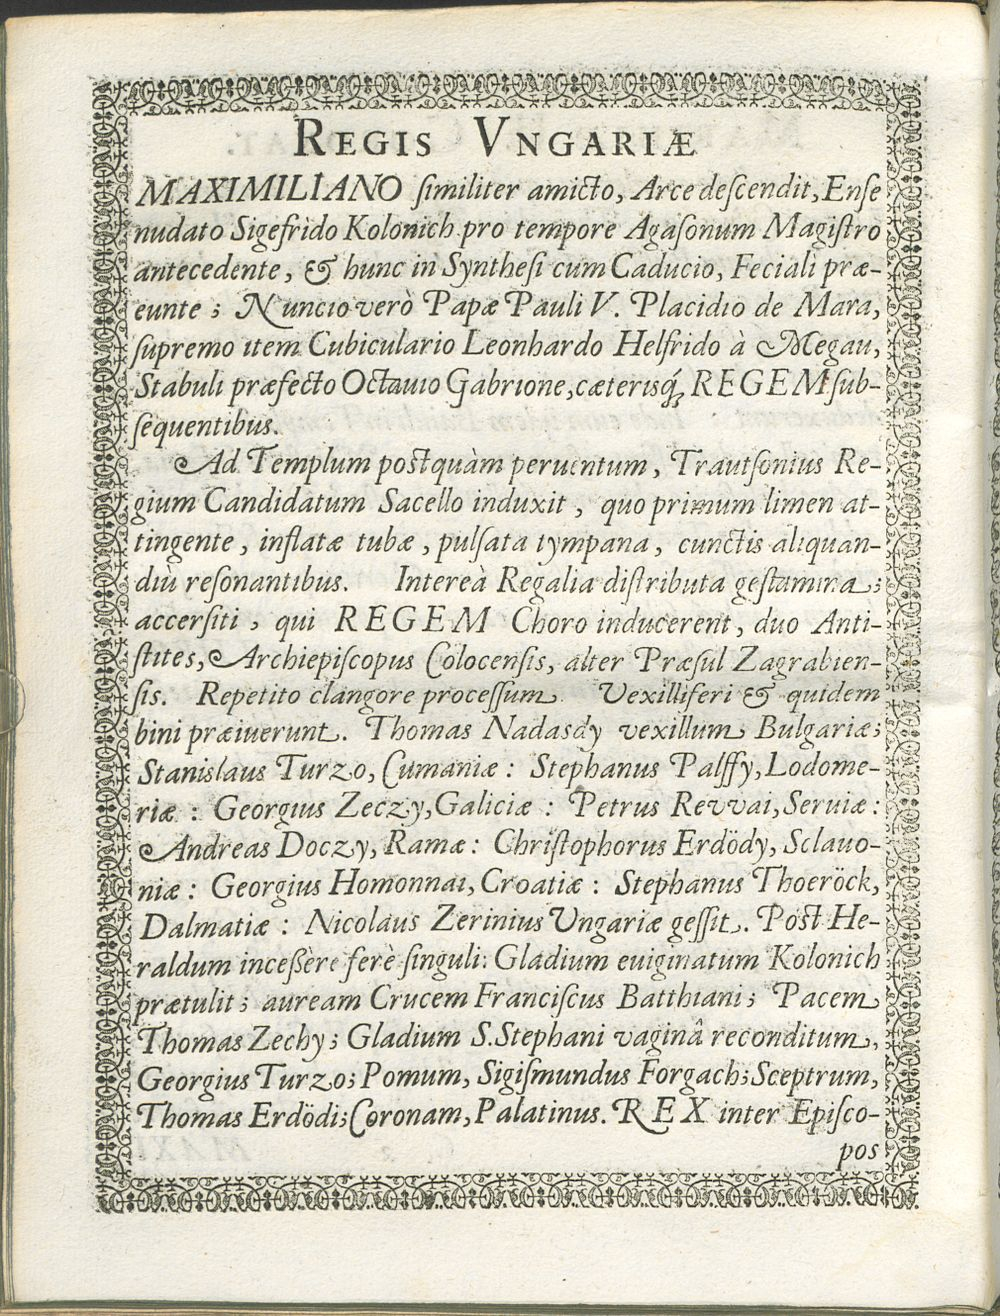 REGIS VNGARIÆ
MAXIMILIANO ſimiliter amicto, Arce deſcendit, Enſe
nudato Sigefrido Kolonich pro tempore Agaſonum Magiſtro
antecedente, & hunc in Syntheſi cum Caducio, Feciali præ-
eunte; Nuncio verò Papæ Pauli V. Placidio de Mara,
ſupremo item Cubiculario Leonhardo Helfrido à Megau,
Stabuli præfecto Octauio Gabrione, cæterisq́; REGEM ſub-
ſequentibus.
Ad Templum poſtquàm peruentum, Trautſonius Re-
gium Candidatum Sacello induxit, quo primum limen at-
tingente, inflatæ tubæ, pulſata tympana, cunctis aliquan-
diù reſonantibus. Intereà Regalia diſtributa geſtamina;
accerſiti, qui REGEM Choro inducerent, duo Anti-
ſtites, Archiepiſcopus Colocenſis, alter Præſul Zagrabien-
ſis. Repetito clangore proceſſum Vexilliferi & quidem
bini præiuerunt. Thomas Nadasdy vexillum Bulgariæ;
Stanislaus Turzo, Cumaniæ: Stephanus Palffy, Lodome-
riæ: Georgius Zeczy, Galiciæ: Petrus Revvai, Seruiæ:
Andreas Doczy, Ramæ: Chriſtophorus Erdödy, Sclauo-
niæ: Georgius Homonnai, Croatiæ: Stephanus Thoeröck,
Dalmatiæ: Nicolaus Zerinius Vngariæ geſſit. Poſt He-
raldum inceßère ferè ſinguli: Gladium euiginatum Kolonich
prætulit; auream Crucem Franciſcus Batthiani; Pacem
Thomas Zechy; Gladium S. Stephani vaginâ reconditum,
Georgius Turzo; Pomum, Sigiſmundus Forgach; Sceptrum,
Thomas Erdödi; Coronam, Palatinus. REX inter Epiſco-
pos